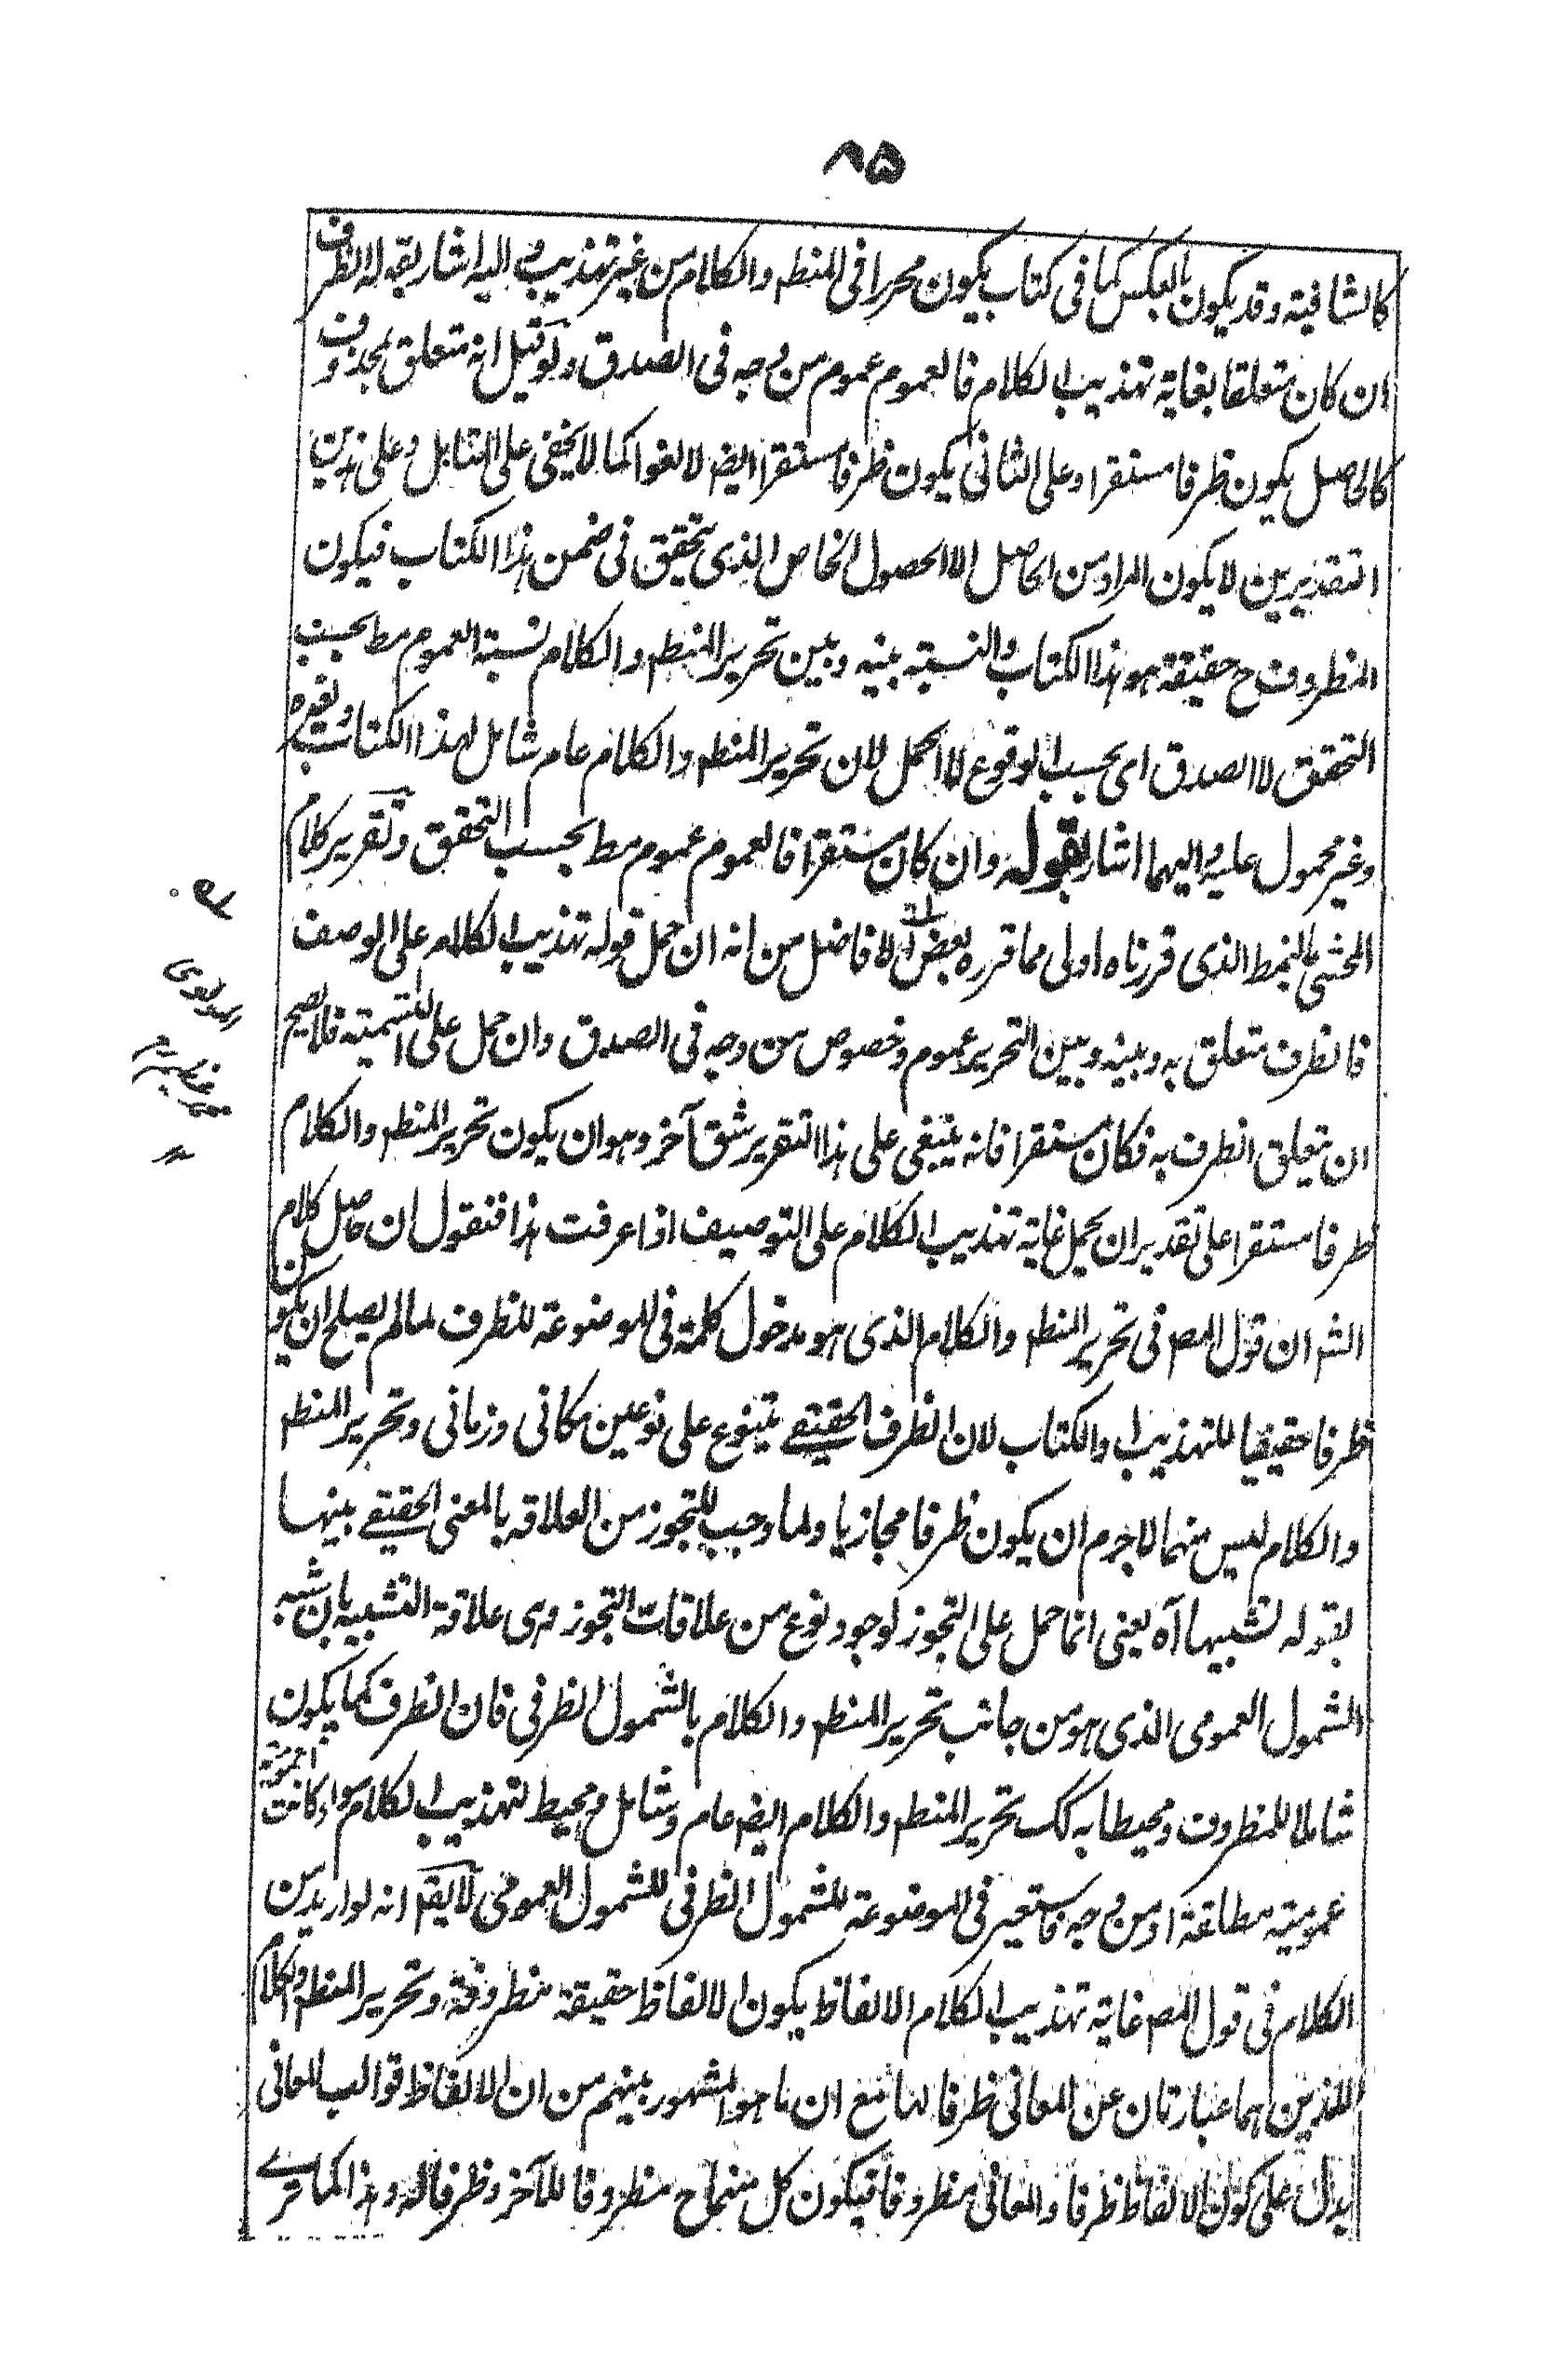 ٨٥
كالشافيته وقد يكون بالعكس كما فى كتاب يكون محررا فى المنطه والكلام من غير تهذيب واليه اشار بقوله الظرف
ان كان متعلقا بغاية تهذيب الكلام فالعموم عموم من وجه فى الصدق ولو قيل انه متعلق بمحذوف
كالحاصل يكون ظرفا مستقرا وعلى الثانى يكون ظرفا مستقرا ايضه لا لغوا كما لا يخفى على المتامل وعلى هذين
التقديرين لا يكون المراد من الحاصل الا الحصول الخاص الذى يتحقق فى ضمن هذا الكتاب فيكون
المظروف ح حقيقة هو هذا الكتاب والنسبته بينه وبين تحرير المنطه والكلام نسبته العموم مط بحسب
التحقق لا الصدق اى بحسب الوقوع لا الحمل لان تحرير المنطه والكلام عام شامل لهذا الكتاب وغيره
وغير محمول عليه واليهما اشار بقوله وان كان مستقرا فالعموم عموم مط بحسب التحقق وتقرير كلام
المحشى بالنمط الذى قررناه اولى مما قرره بعض الافاضل من انه ان حمل قوله تهذيب الكلام على الوصف
فالظرف متعلق به وبينه وبين التحرير عموم وخصوص من وجه فى الصدق وان حمل على التسميته فلا يصح
ان يتعلق الظرف به فكان مستقرا فانه يبقى على هذا التقرير شق آخر وهو ان يكون تحرير المنطه والكلام
ظرفا مستقرا على تقدير ان يحمل غاية تهذيب الكلام على التوصيف اذا عرفت هذا فنقول ان حاصل كلام
الشه ان قول المصه فى تحرير المنطه والكلام الذى هو مدخول كلمة فى الموضوعة للظرف لما لم يصلح ان يكون
ظرفا حقيقيا للتهذيب والكتاب لان الظرف الحقيقے يتنوع على نوعين مكانى وزمانى وتحرير المنطه
والكلام ليس منهما لاجرم ان يكون ظرفا مجازيا ولما وجب للتجوز من العلاقه بالمعنى الحقيقے بينها
بقوله تشبيها آه يعنى انما حمل على التجوز لوجود نوع من علاقات التجوز وهى علاقة التشبيه بان شبه
الشمول العمومى الذى هو من جانب تحرير المنطه والكلام بالشمول الظرفى فان الظرف كما يكون
شاملا للمظروف ومحيطا به كك تحرير المنطه والكلام ايضه عام وشامل ومحيط لتهذيب الكلام سواء كانت
عموميته مطلقة او من وجه فاستعير فى الموضوعة للشمول الظرفى للشمول العمومى لا يقه انه لو اريد من
الكلام فى قول المصه غاية تهذيب الكلام الالفاظ يكون الالفاظ حقيقة مظروفة وتحرير المنطه والكلام
اللذين هما عبارتان عن المعانى ظرفا لها مع ان ما هو المشهور بينهم من ان الالفاظ قوالب المعانى
يدل على كون الالفاظ ظرفا والمعانى مظروفا فيكون كل منهما ح مظروفا للآخر وظرفا له وهذا كما ترے